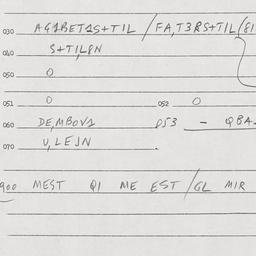 030 AG1BET1S+TIL / FA,T3RS+TIL (81
040 S+TIL8N
050 O
051 O 052 O
060 DE,MBOV1 053 - QBA
070 U,LEJN
900 MEST QI ME EST / GL MIR